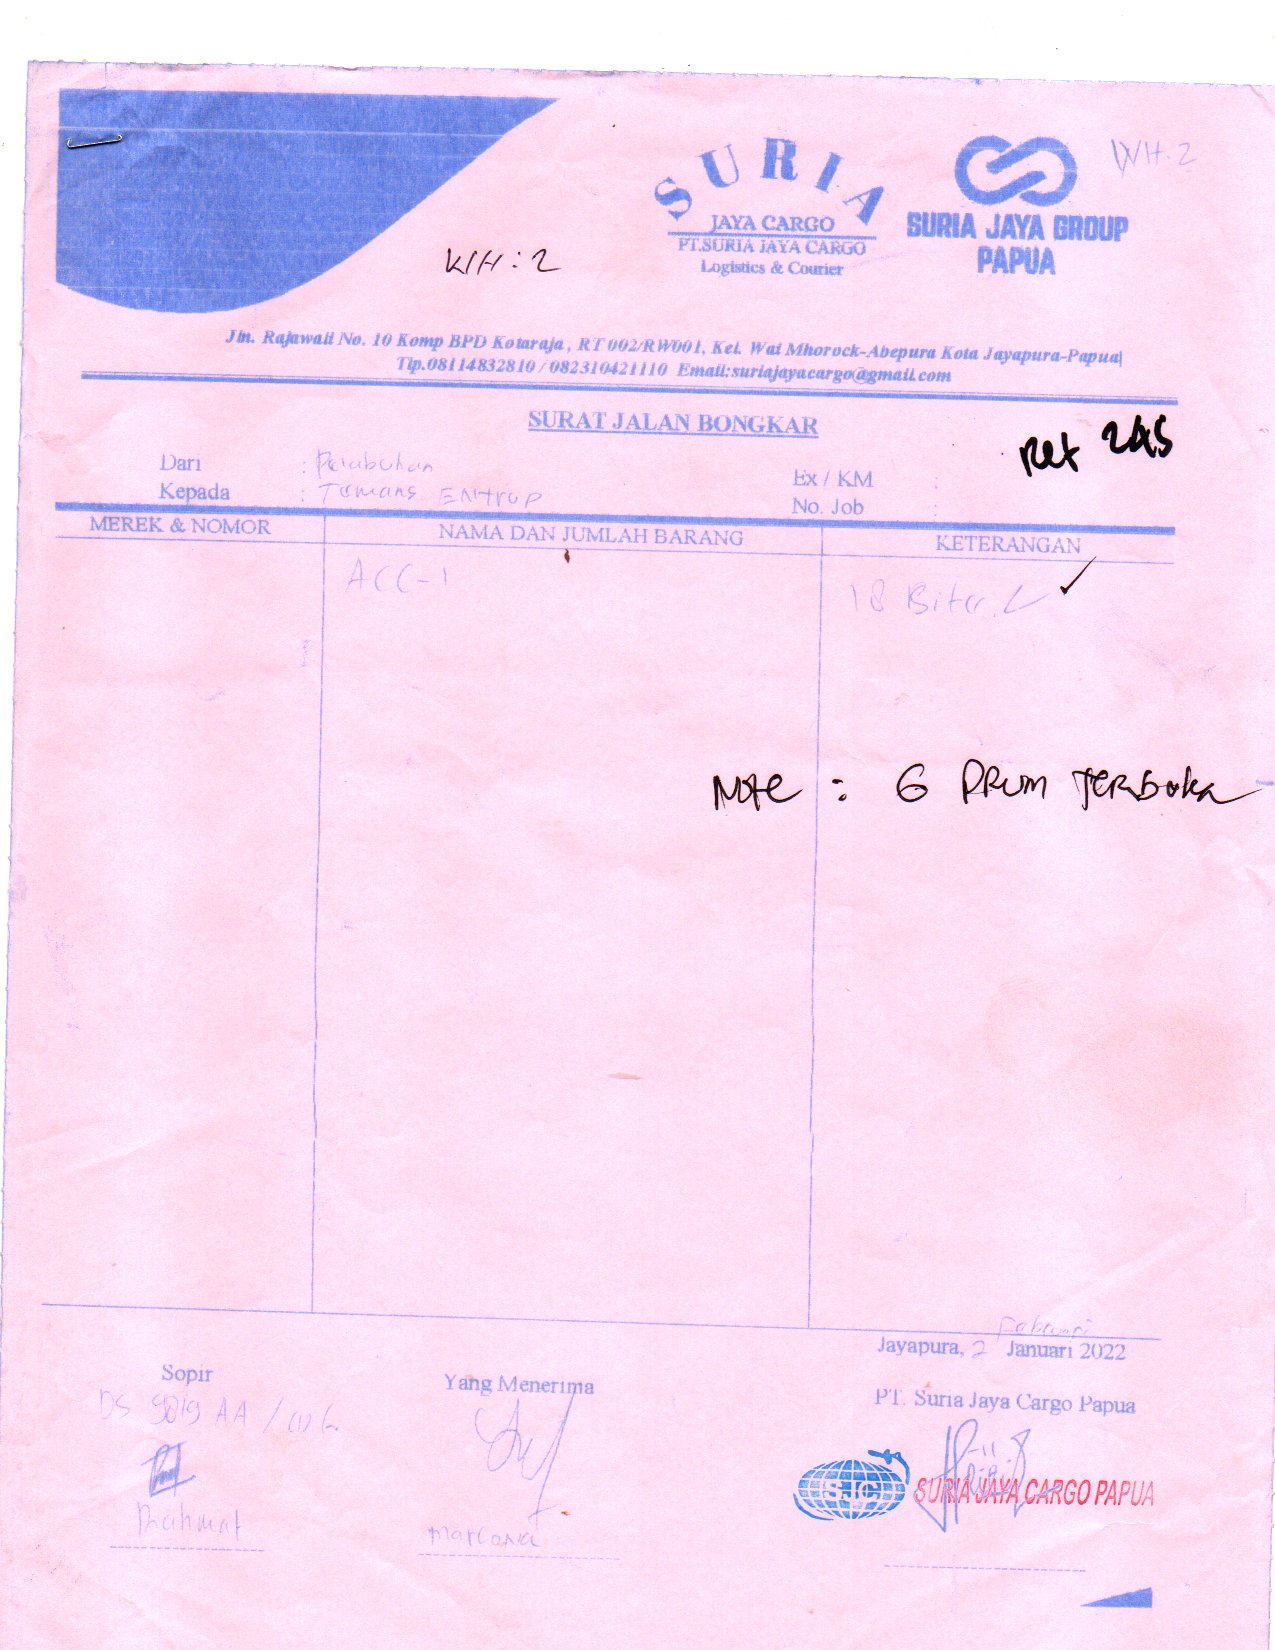 WH.2
SURIA
JAYA CARGO
PT.SURIA JAYA CARGO
Logistics & Courier
SURIA JAYA GROUP
PAPUA
KIH : 2
Jln. Rajawali No. 10 Komp BPD Kotaraja, RT 002/RW001, Kel. Wai Mhorock-Abepura Kota Jayapura-Papua
Tlp.08114832810 / 082310421110 Email:suriajayacargo@gmail.com
SURAT JALAN BONGKAR
Ret 245
Dari : Pelabuhan
Kepada : Entrop
Ex / KM :
No. Job :
MEREK & NOMOR NAMA DAN JUMLAH BARANG KETERANGAN
ACC-1 18
Note : 6 DRUM TERBUKA
Februari
Jayapura, 2 Januari 2022
Sopir Yang Menerima PT. Suria Jaya Cargo Papua
DS AA /
SJC SURIA JAYA CARGO PAPUA
Rahmat